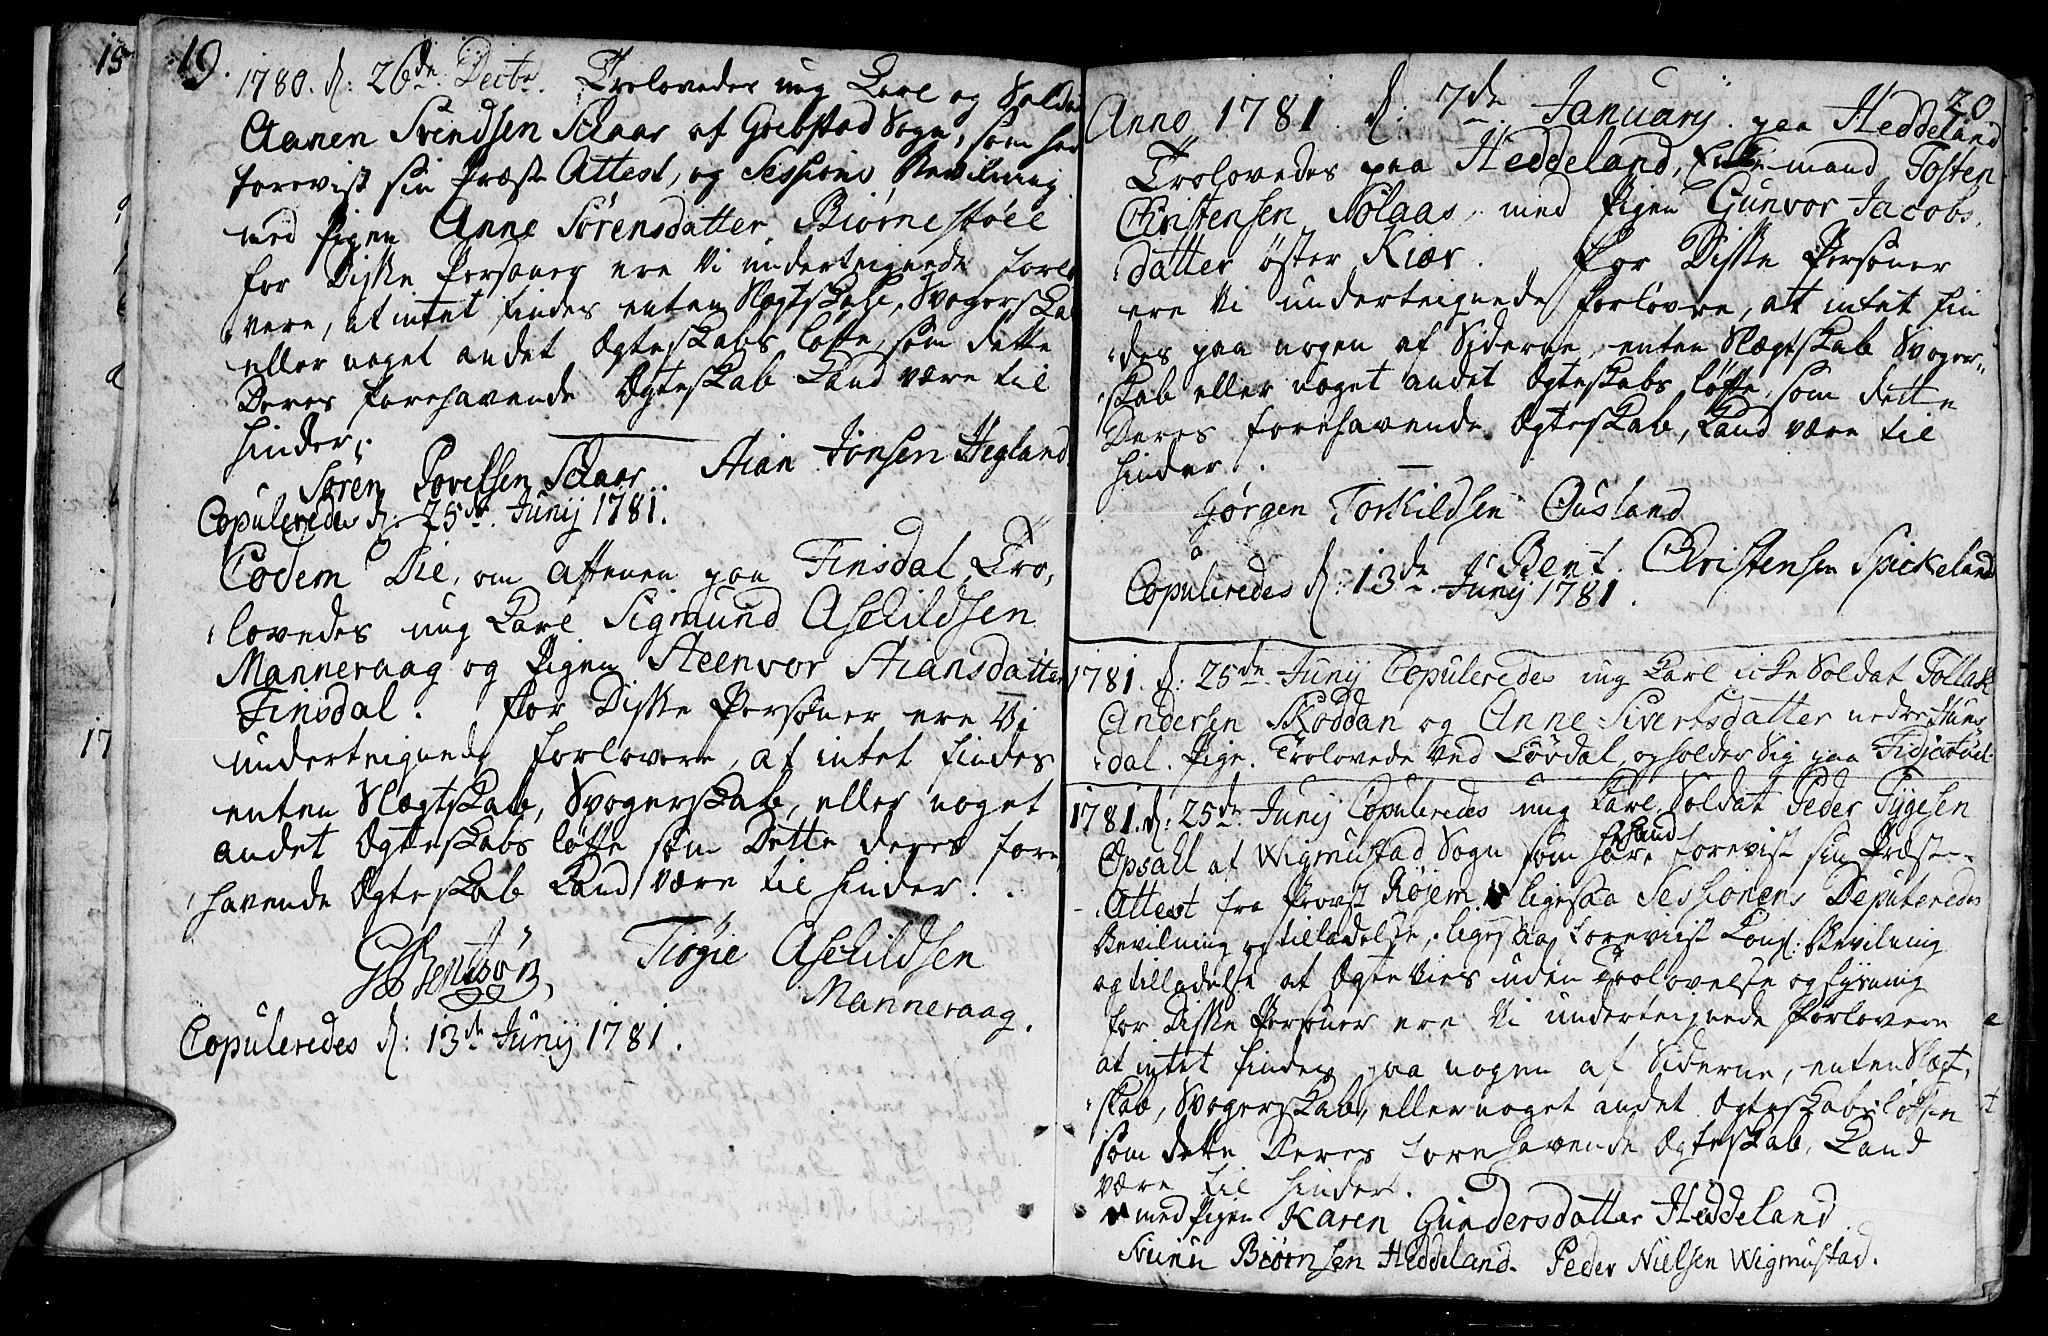 19.
1780. d: 26de Decbr. Trolovedes ung Karl og Soldat
Aanen Svendsen Schaar af Greebstad Sogn, som har
forevist sin Præste Attest, og Sessions Bevilning
med Pigen Anne Sørensdatter Biørnestøel
for Disse Persaaner ere Vi underteignede forlo
vere, at intet findes enten Slegtskab, Svogerskab
eller noget andet Ægteskabs løfte, som dette
Deres forehavende Ægteskab kand være til
hinder.
Søren Povelsen Schaar. Stian Jonsen Hegland
Copuleredes d: 25de Junij 1781.
Eodem Die, om Aftenen paa Finsdal Tro,
lovedes ung Karl Sigmund Aschildsen
Manneraag og Pigen Steenvor Stiansdatter
Finsdal. For Disse Personer ere Vi
underteignede forlovere, at intet findes
enten Slægtskab, Svogerskab, eller noget
andet Ægteskabs løfte som Dette deres fore
havende Ægteskab kand være til hinder.
Tiøgie Aschildsen
Manneraag.
Copuleredes d: 13de Junij 1781.
20
Anno 1781 d: 7de Januarij. paa Heddeland
Trolovedes paa Heddeland, Enkemand Tosten
Christensen Solaas, med Pigen Gunvor Jacobs,
datter øster Kiær. For Disse Personer
ere Vi underteignede Forlovere, at intet fin
des paa nogen af Siderne, enten Slægtskab Svoger,
skab eller noget andet Ægteskabs løfte, som dette
Deres forehavende Ægteskab, kand være til
hinder.
Jørgen Torkildsen Øusland
Bent Christensen Spickeland
Copuleredes d: 13de Junij 1781.
1781. d: 25de Junij Copuleredes ung Karl icke Soldat Tollak
Andersen Skoddan og Anne Sivertsdatter nedre Huns
dal. Pige. Trolovede ved Løvdal, og holder sig paa
1781. d: 25de Junij Copuleredes ung Karl Soldat Peder Tygesen
Opsahl af Wigmustad Sogn som have forevist sin Præste
Attest fra Provst Røjem, ligesaa Sessionens Deputeredes
Bevilning og tilladelse, ligesaa foreviist Kongl: Bevilning
og tilladelse at Ægte Vies uden Trolovelse og Lysning
for Disse Personer ere Vi underteignede Forlovere
at intet findes paa nogen af Siderne, enten Slægt,
skab, Svogerskab, eller noget andet Ægteskabs løften
som dette Deres forehavende Ægteskab, kand
være til hinder.
med Pigen Karen Gundersdatter Heddeland
Biørnsen Heddeland. Peder Nielsen Wigmustad.